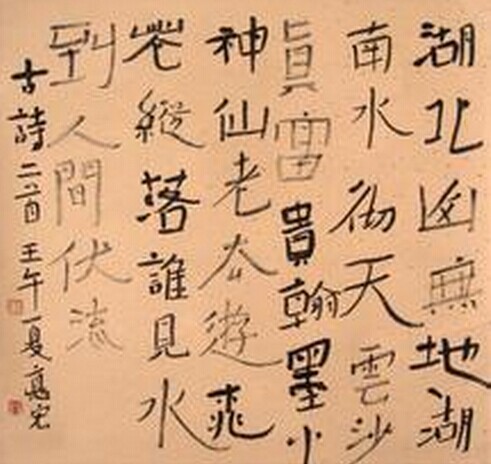 湖北山無地湖
南水徹天雲沙
眞富貴翰墨小
神仙老遊桃
花縱落誰見水
到人間伏流
古詩二首壬午夏